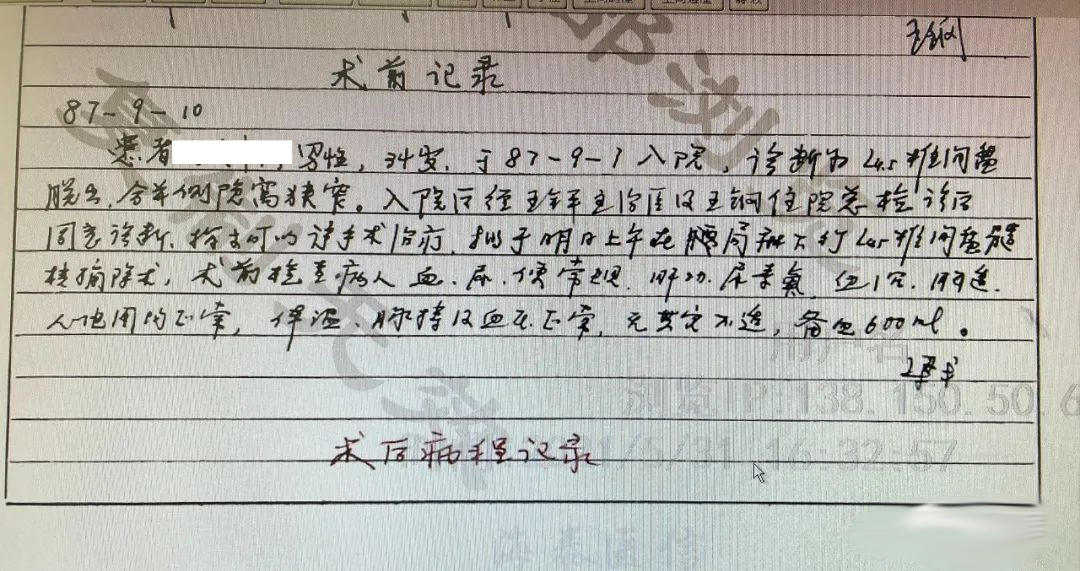 术前记录
87-9-10
患者 男性，34岁，于87-9-1入院，诊断为L4.5椎间盘
脱出，合并侧隐窝狭窄。入院后经 主治医及王钢住院总检诊后
同意诊断，指出可以 手术治疗，拟于明日上午在腰局麻下行L4.5椎间盘髓
核摘除术，术前检查病人血、尿、便常规、肝功、尿素氮、 、胸透、
心电图均正常，体温、脉搏及血压正常，无其它不适，备血600ml。
术后病程记录
浏览IP:138.150.50.6
/5/31 16:32:57